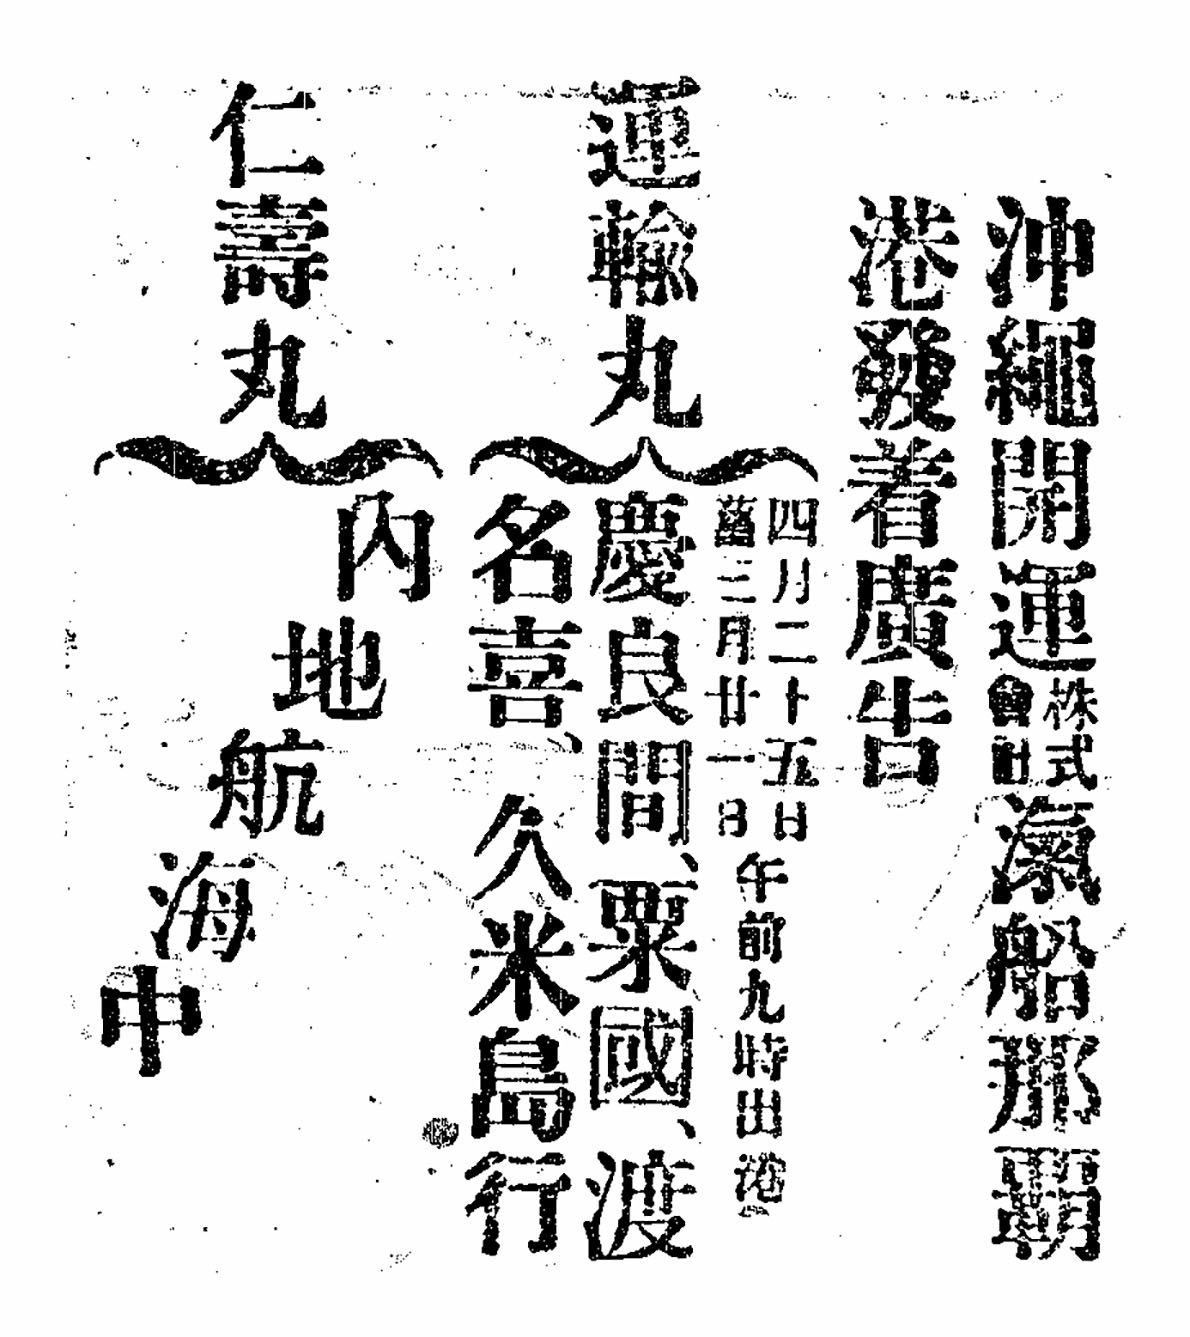 沖繩開運株式會社滊船那覇
港發着廣告
運輸丸
四月二十五日
舊三月廿一日
午前九時出港
慶良間、粟國、渡
名喜、久米島行
仁壽丸
内地航海中